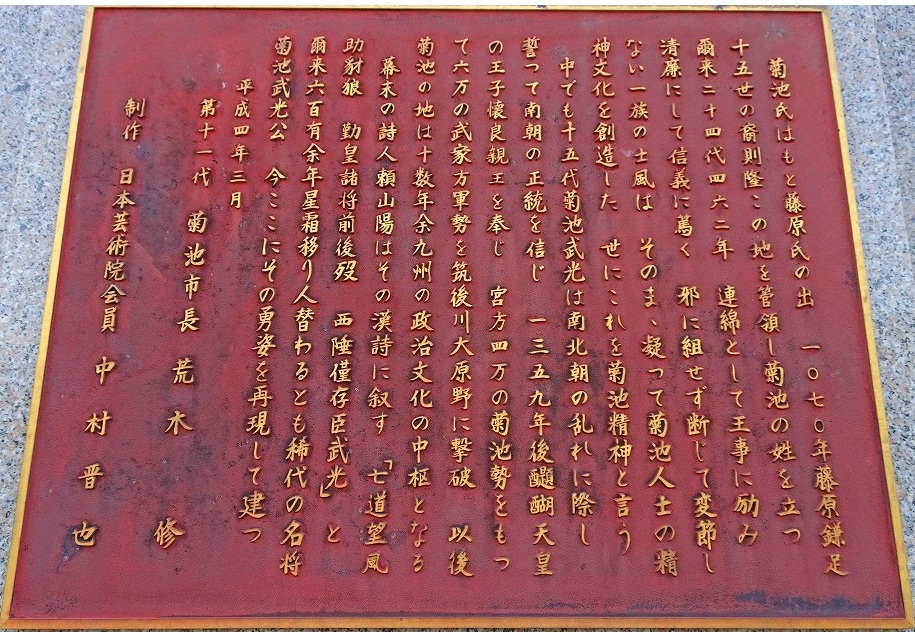 菊池氏はもと藤原氏の出　一〇七〇年藤原鎌足
十五世の裔則隆この地を管領し菊池の姓を立つ
爾来二十四代四六二年　連綿として王事に励み
清廉にして信義に篤く　邪に組せず断じて変節し
ない一族の士風は　そのまゝ凝って菊池人士の精
神文化を創造した　世にこれを菊池精神と言う
中でも十五代菊池武光は南北朝の乱れに際し
誓つて南朝の正統を信じ　一三五九年後醍醐天皇
の王子懐良親王を奉じ　宮方四万の菊池勢をもっ
て六万の武家方軍勢を筑後川大原野に撃破　以後
菊池の地は十数年余九州の政治文化の中枢となる
幕末の詩人頼山陽はその漢詩に叙す「七道望風
助豺狼　勤皇諸将前後歿　西陲僅存臣武光」と
爾来六百有余年星霜移り人替わるとも稀代の名将
菊池武光公　今ここにその勇姿を再現して建つ
平成四年三月
第十一代　菊池市長　荒木　修
制作　日本芸術院会員　中村晋也